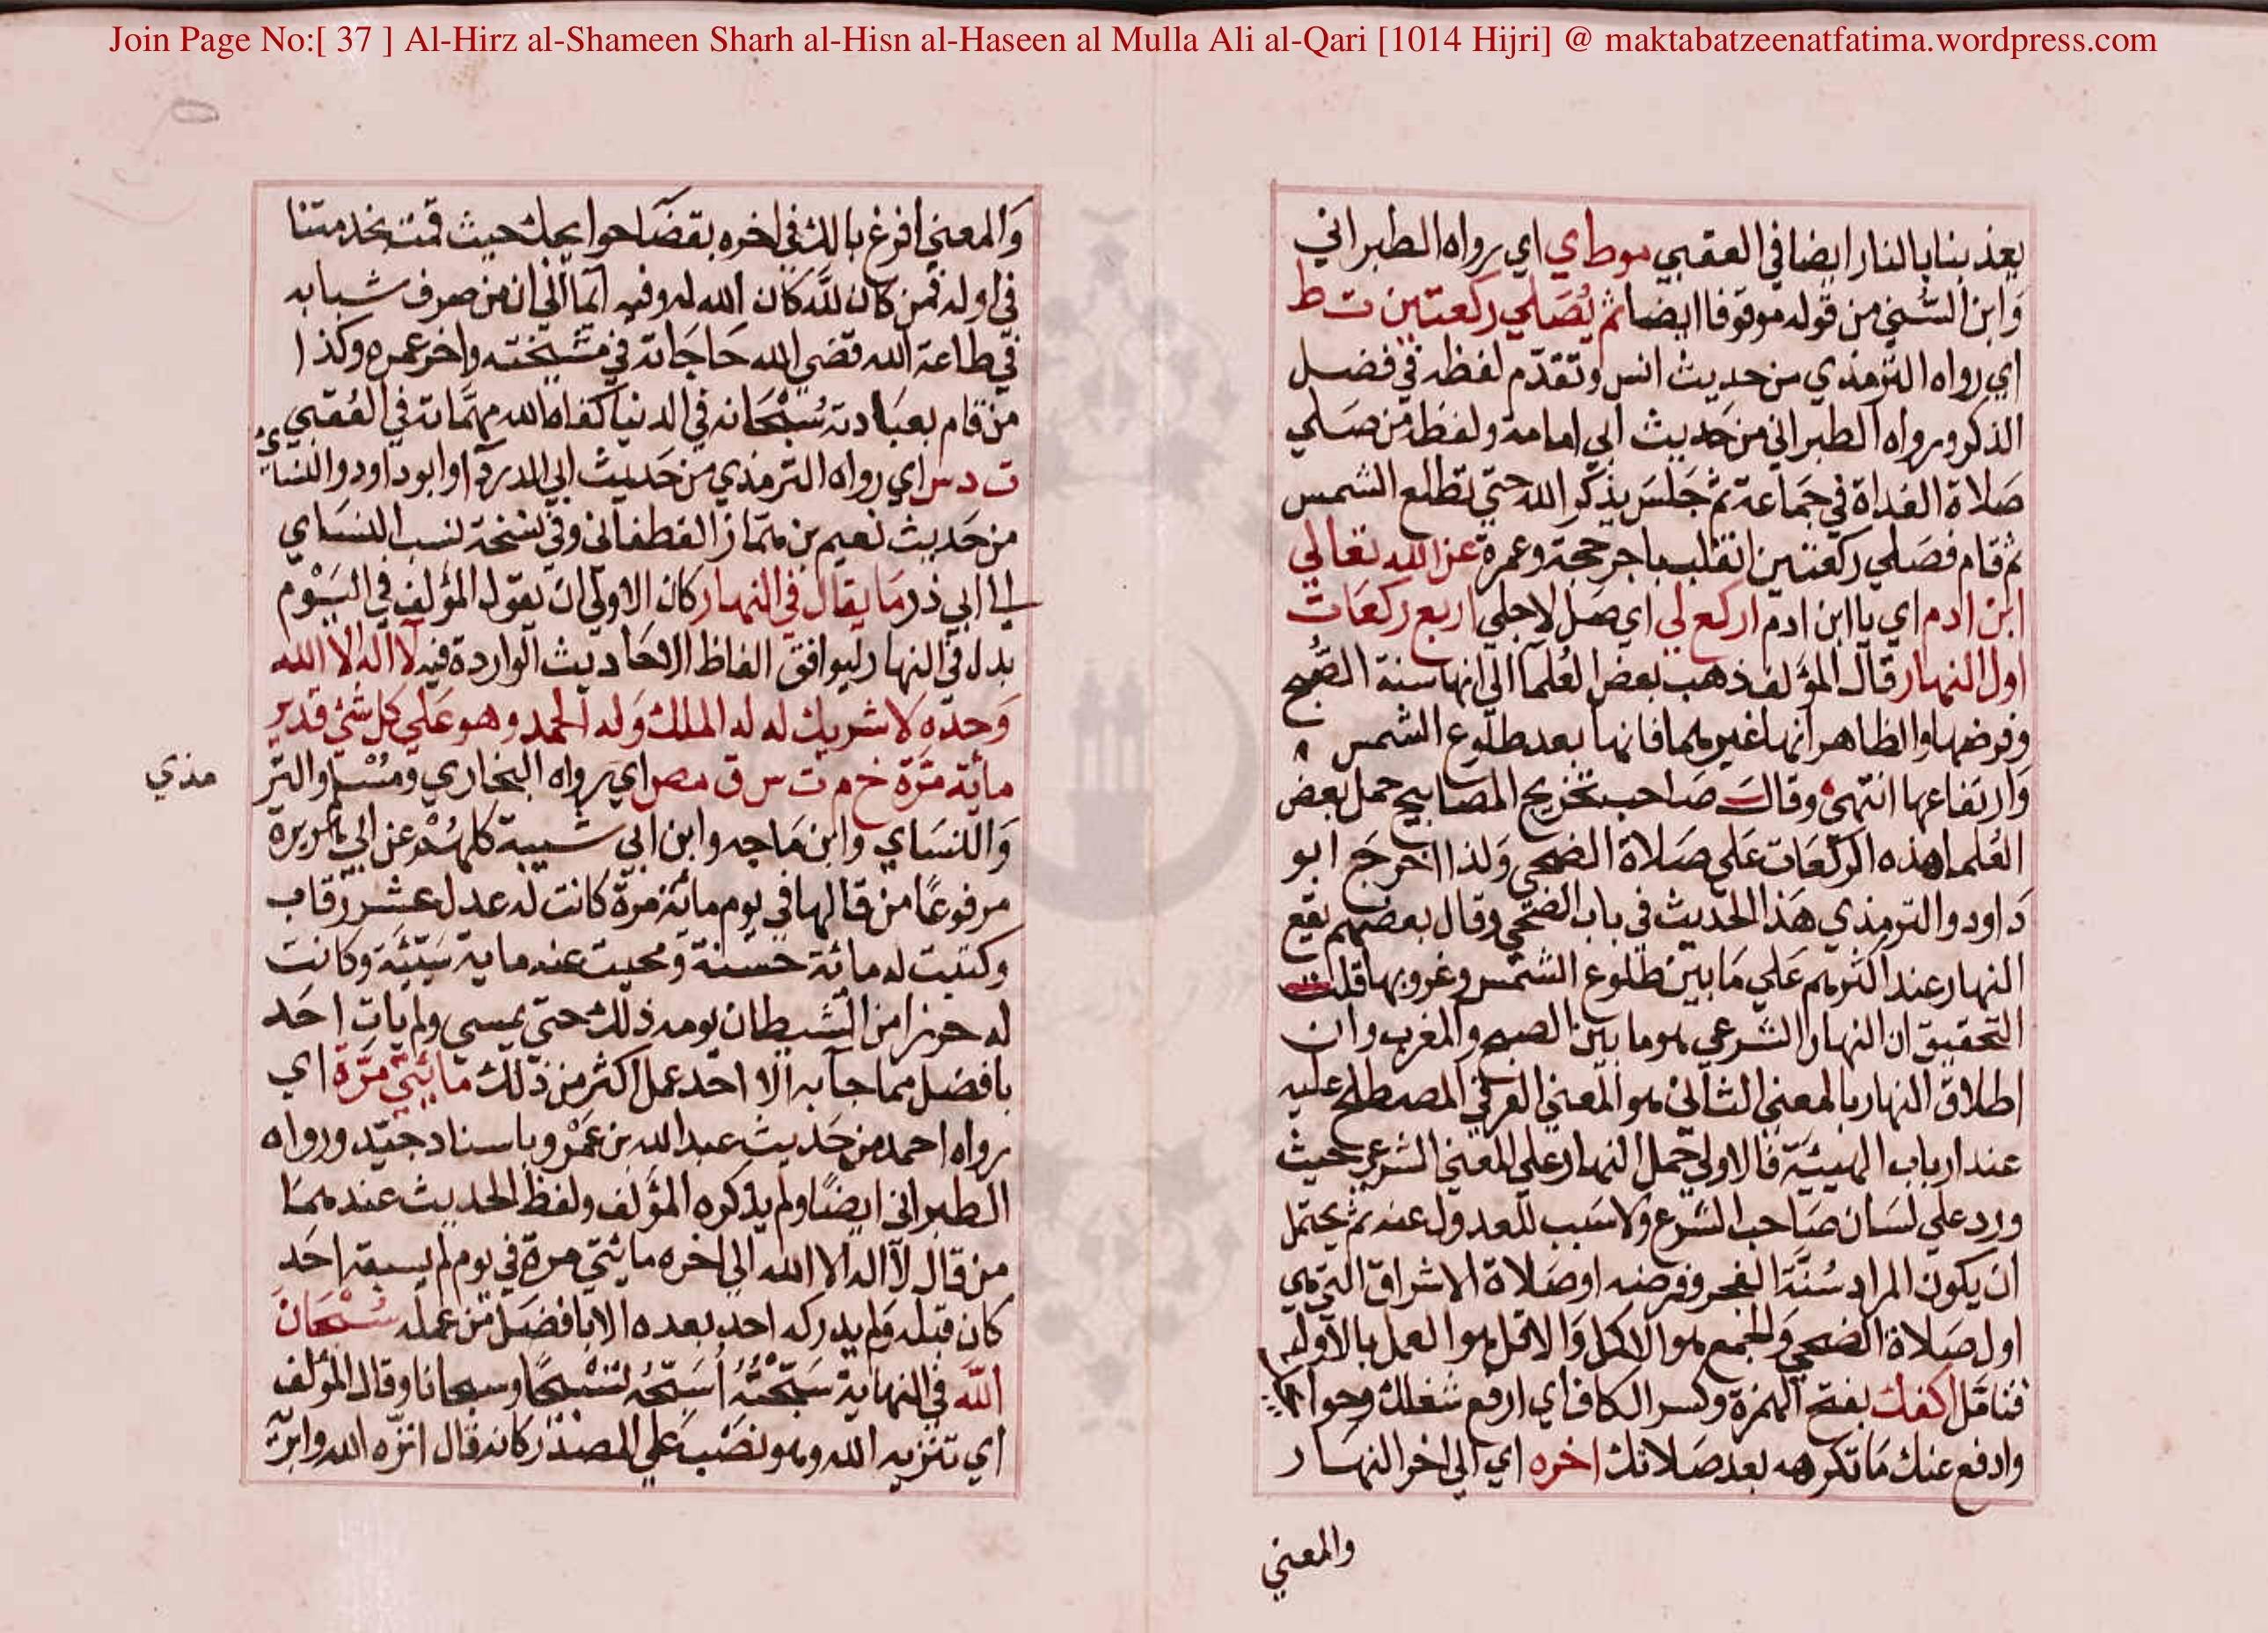 Join Page No:[ 37 ] Al-Hirz al-Shameen Sharh al-Hisn al-Haseen al Mulla Ali al-Qari [1014 Hijri] @ maktabatzeenatfatima.wordpress.com
يعذبنا بالنار ايضا في العقبي موطاي اي رواه الطبراني
وابن السني من قوله موقوفا ايضا ثم يصلي ركعتين ت ط
اي رواه الترمذي من حديث انس وتقدم لفظه في فضل
الذكر ورواه الطبراني من حديث ابي امامة ولفظه من صلي
صلاة الغداة في جماعة ثم جلس يذكر الله حتي تطلع الشمس
ثم قام فصلي ركعتين انقلب باجر حجة وعمرة عن الله تعالي
ابن ادم اي يا ابن ادم اركع لي اي صل لاجلي اربع ركعات
اول النهار قال المؤلف ذهب بعض العلما الي انها سنة الصبح
وفرضها والظاهر انها غيرهما فانها بعد طلوع الشمس
وارتفاعها انتهي وقال صاحب تخريج المصابيح حمل بعض
العلما هذه الركعات علي صلاة الضحي ولذا اخرج ابو
داود والترمذي هذا الحديث في باب الضحي وقال بعضهم يقع
النهار عند اكثرهم علي ما بين طلوع الشمس وغروبها قلت
التحقيق ان النهار الشرعي هو ما بين الصبح والمغرب وان
اطلاق النهار بالمعني الثاني هو المعني العرفي المصطلح عليه
عند ارباب الهيئية فالاولي حمل النهار علي المعني الشرعي حيث
ورد علي لسان صاحب الشرع ولا سبب للعدول عنه ثم يحتمل
ان يكون المراد سنة الفجر وفرضه او صلاة الاشراق التي هي
اول صلاة الضحي والجمع هو الاكمل والاقل هو العمل بالاوليه
فتامل اكفك بفتح الهمزة وكسر الكاف اي ارفع شغلك وحوا
وادفع عنك ما تكرهه بعد صلاتك اخره اي الي اخر النهار
والمعني
والمعني افرغ بالك في اخره بقضا حوايجك حيث قمت بخدمتنا
في اوله فمن كان لله كان الله له وفيه ايما الي ان من صرف شبابه
في طاعة الله قضي الله حاجاته في مشيخته واخر عمره وكذا
من قام بعبادته سبحانه في الدنيا كفاه الله مهماته في العقبي
ت د س اي رواه الترمذي من حديث ابي الدردآ وابو داود والنساي
من حديث نعيم بن همّاز الغطفاني وفي نسخة نسب النساي
الي ابي ذر ما يقال في النهار كان الاولي ان يقول المؤلف في اليوم
بدل في النهار ليوافق الفاظ الاحاديث الواردة فيه لا اله الا الله
وحده لا شريك له له الملك وله الحمد وهو علي كل شئ قدير
مائة مرة خ م ت س ق مص اي رواه البخاري ومسلم والتر
مذي
والنساي وابن ماجه وابن ابي شيبة كلهم عن ابي هريرة
مرفوعا من قالها في يوم مائة مرة كانت له عدل عشر رقاب
وكتبت له مائة حسنة ومحيت عنه ماية سيئة وكانت
له حرزا من الشيطان يومه ذلك حتي يمسي ولم يات احد
بافضل مما جا به الا احد عمل اكثر من ذلك مائتي مرة اي
رواه احمد من حديث عبد الله بن عمرو باسناد جيد ورواه
الطبراني ايضا ولم يذكره المؤلف ولفظ الحديث عندهما
من قال لا اله الا الله الي اخره مائتي مرة في يوم لم يسبقه احد
كان قبله ولم يدركه احد بعده الا بافضل من عمله سبحان
الله في النهاية سبحته اسبحه تسبيحا وسبحانا وقال المؤلف
اي تنزيه الله وهو نصب علي المصدر كانه قال انزه الله وابرئه